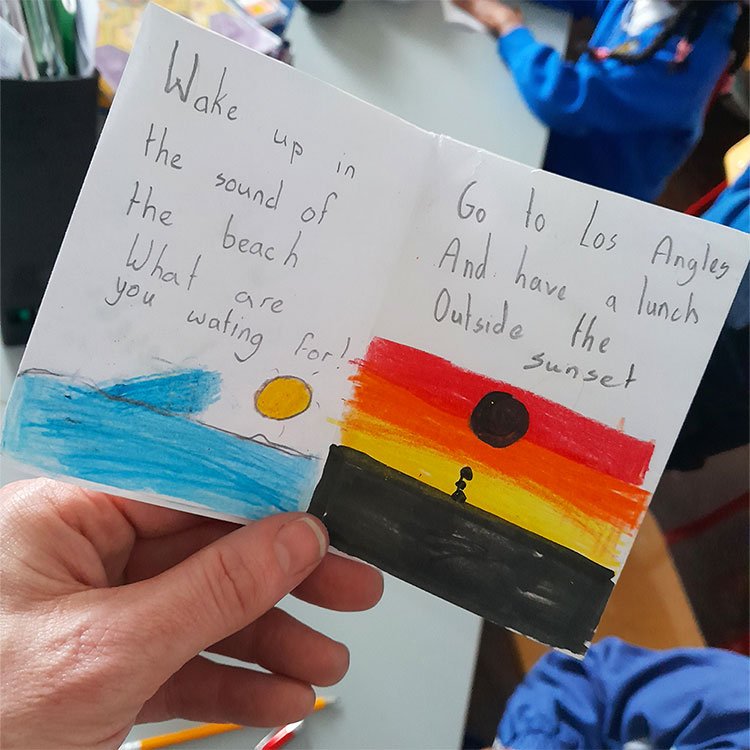 Wake up in
the sound of
the beach
What are
you wating for!
Go to Los Angles
And have a lunch
Outside the
sunset